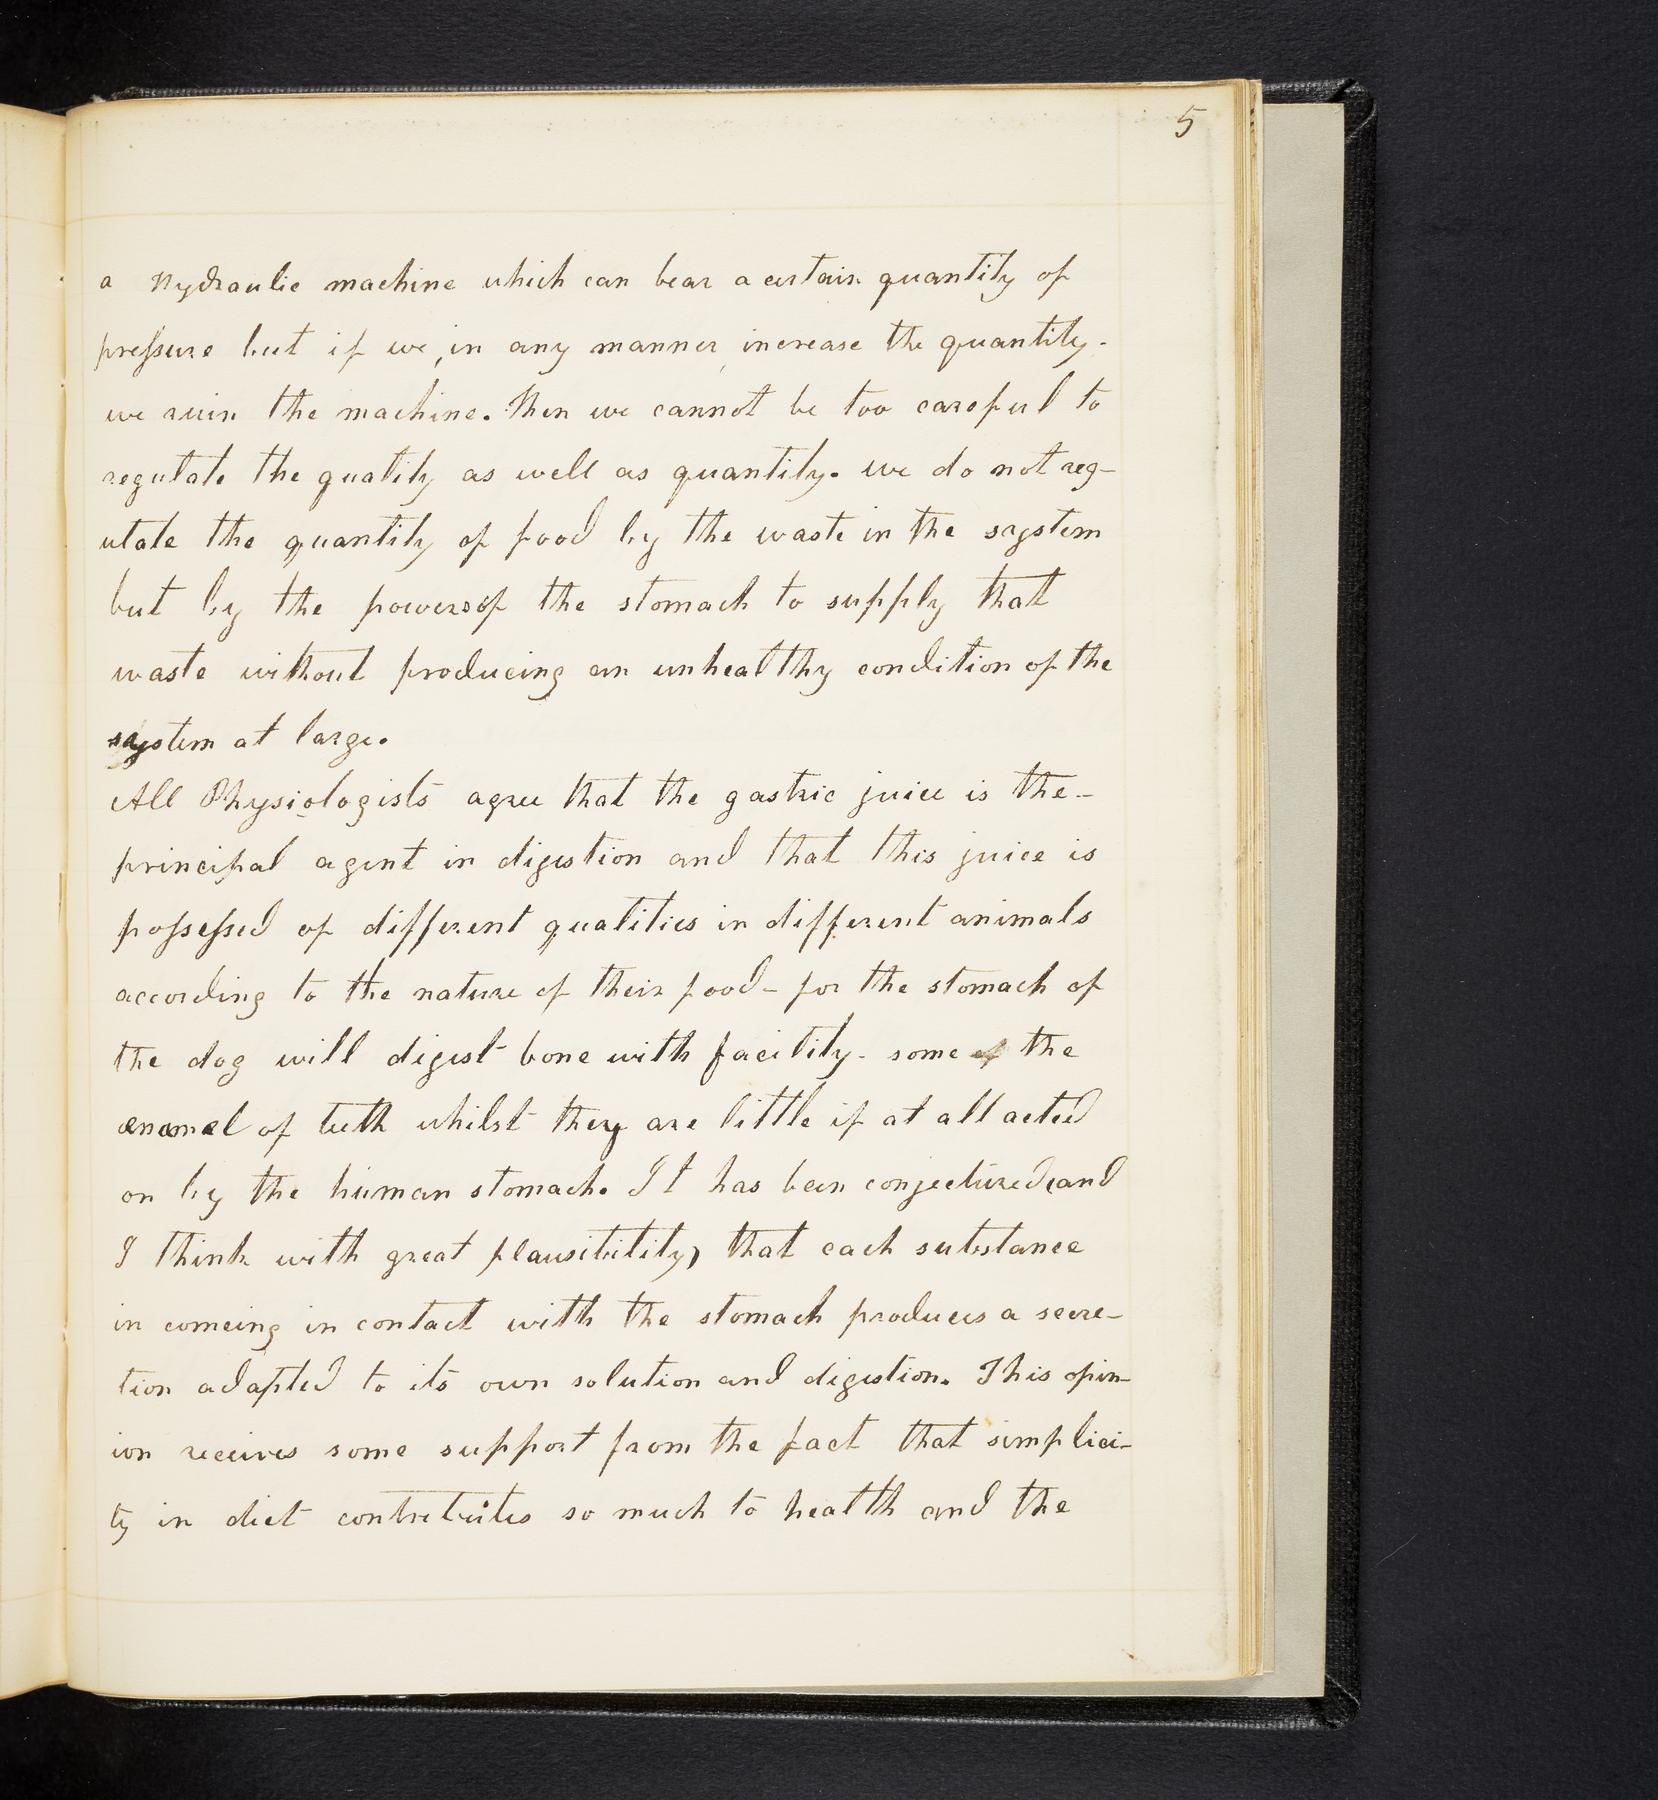 5
a Hydraulic machine which can bear a certain quantity of
pressure but if we, in any manner, increase the quantity-
we ruin the machine. Then we cannot be too careful to
regulate the quality as well as quantity. we do not reg-
ulate the quantity of food by the waste in the system
but by the powers of the stomach to supply that
waste without producing an unhealthy condition of the
system at large.
All Physiologists agree that the gastric juice is the-
principal agent in digestion and that this juice is
possessed of different qualities in different animals
according to the nature of their food- for the stomach of
the dog will digest bone with facility- some of the
enamel of teeth whilst they are little if at all acted
on by the human stomach. It has been conjectured (and
I think with great plausibility) that each substance
in comeing in contact with the stomach produces a secre-
tion adapted to its own solution and digestion. This opin-
ion receives some support from the fact that simplici-
ty in diet contributes so much to health and the